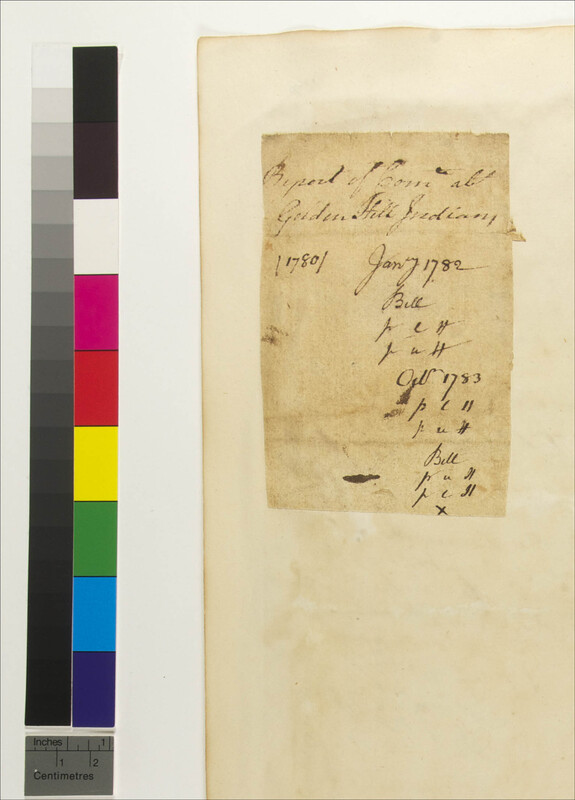 Report of Com.tee abt
Golden Hill Indians
/1780/ Jany 1782
Bill
p L H
p u H
Octr 1783
p L H
p u H
Bill
p u H
p L H
x
Inches 1
1 2
Centimetres